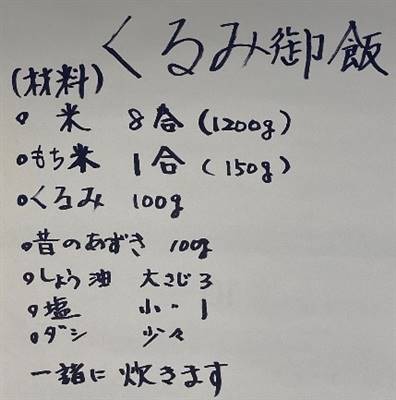 くるみ御飯
(材料)
○ 米 8合 (1200g)
○もち米 1合 (150g)
○くるみ 100g
○昔のあずき 100g
○しょう油 大さじ3
○塩 小〃1
○ダシ 少々
一諸に炊きます